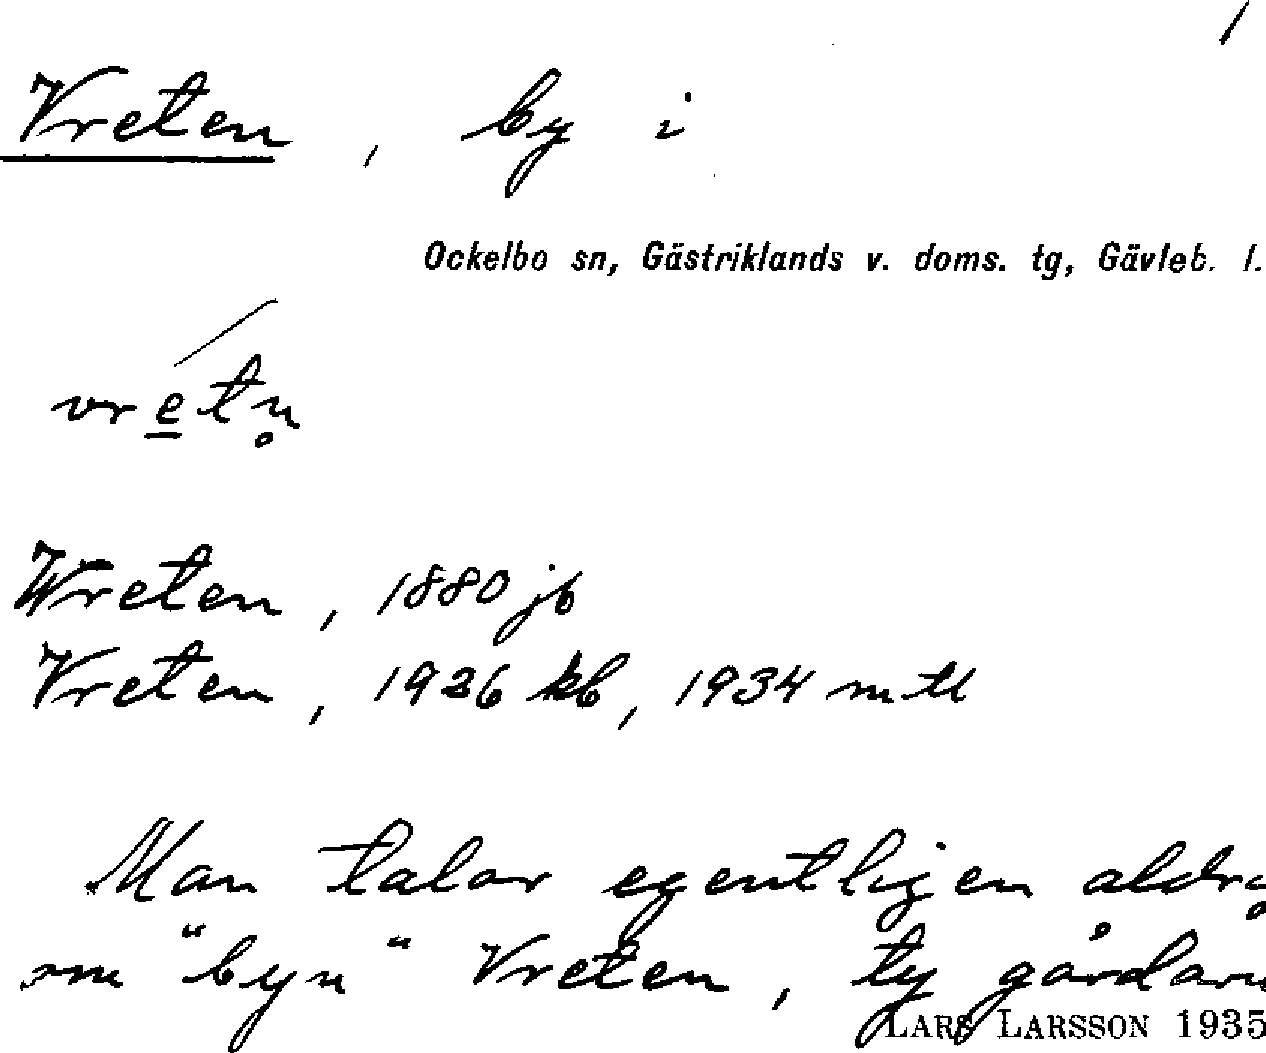 1
Vreten, by i
Ockelbo sn, Gästriklands v. doms. tg, Gävleb. l.
vrétn̥
Wreten, 1880 jb
Vreten, 1926 kb, 1934 mtl
Man talar egentligen aldrig
om "byn" Vreten, ty gårdarn
LARS LARSSON 1935